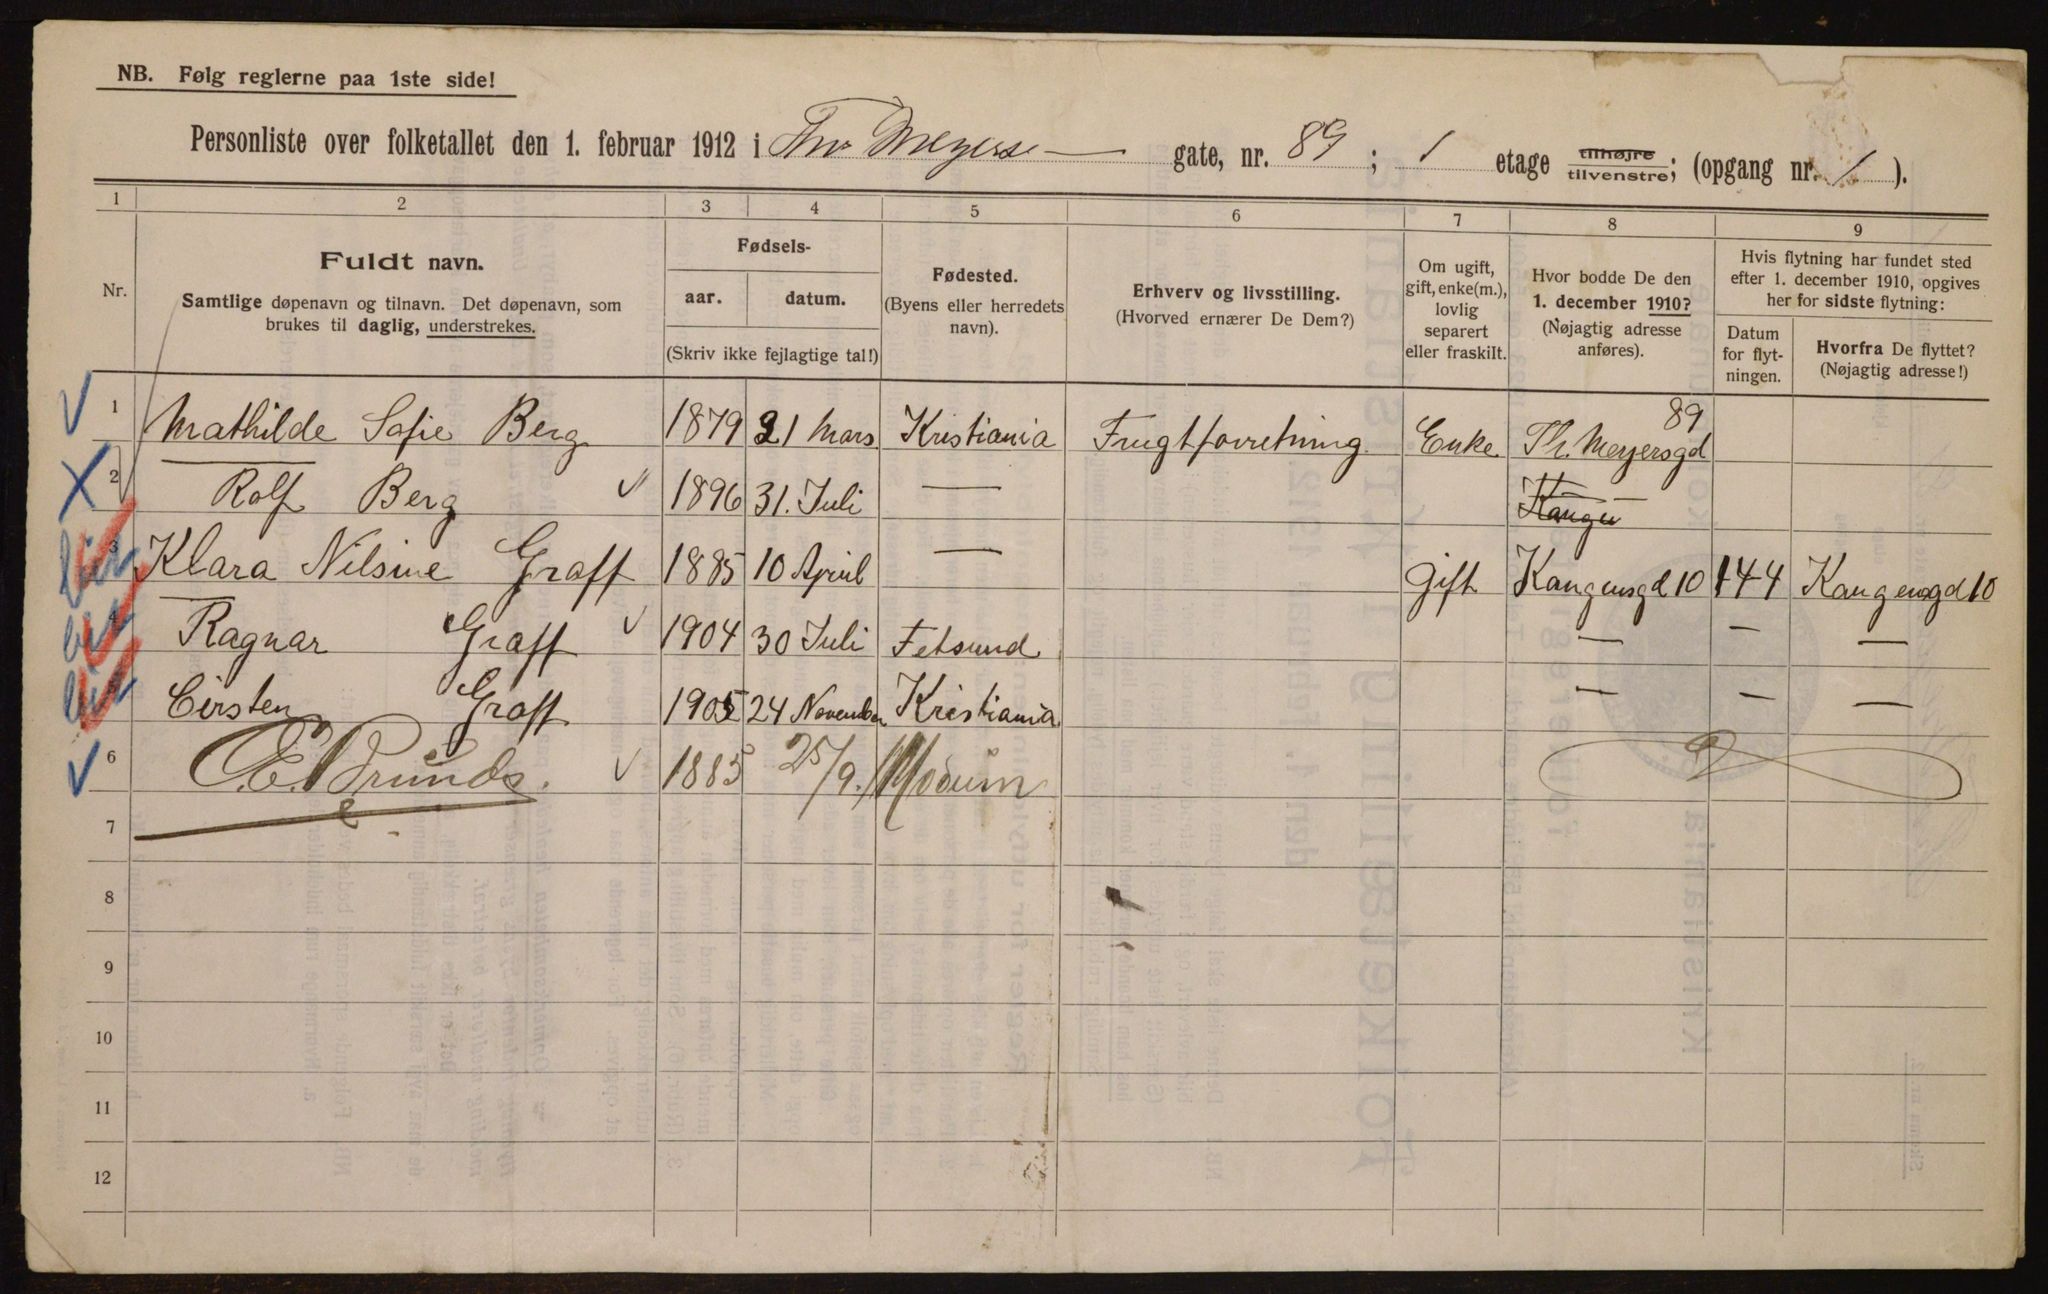 NB. Følg reglerne paa 1ste side!
Personliste over folketallet den 1. februar 1912 i Thv Meyers gate, nr. 89 ; 1 etage tilhøjre tilvenstre; (opgang nr. 1 ).
1 2 3 4 5 6 7 8 9
Nr.
Fuldt navn.
Samtlige døpenavn og tilnavn. Det døpenavn, som
brukes til daglig, understrekes.
Fødsels-
aar. datum.
(Skriv ikke fejlagtige tal!)
Fødested.
(Byens eller herredets
navn).
Erhverv og livsstilling.
(Hvorved ernærer De Dem?)
Om ugift,
gift, enke(m.),
lovlig
separert
eller fraskilt.
Hvor bodde De den
1. december 1910?
(Nøjagtig adresse
anføres).
Hvis flytning har fundet sted
efter 1. december 1910, opgives
her for sidste flytning:
Datum
for flyt-
ningen.
Hvorfra De flyttet?
(Nøjagtig adresse!)
1 Mathilde Sofie Berg 1879 21 Mars Kristiania Frugtforretning Enke Th. Meyersgd 89
2 Rolf Berg 1896 31. Juli — —
Kange
3 Klara Nilsine Graff 1885 10 April — Gift Kangensgd 10 144 Kangensgd 10
4 Ragnar Graff 1904 30 Juli Fetsund — — —
Cirsten Graff 1905 24 November Kristiania — — —
6 C.E. Brunds. 1885 25/9. Modum
7
8
9
10
11
12